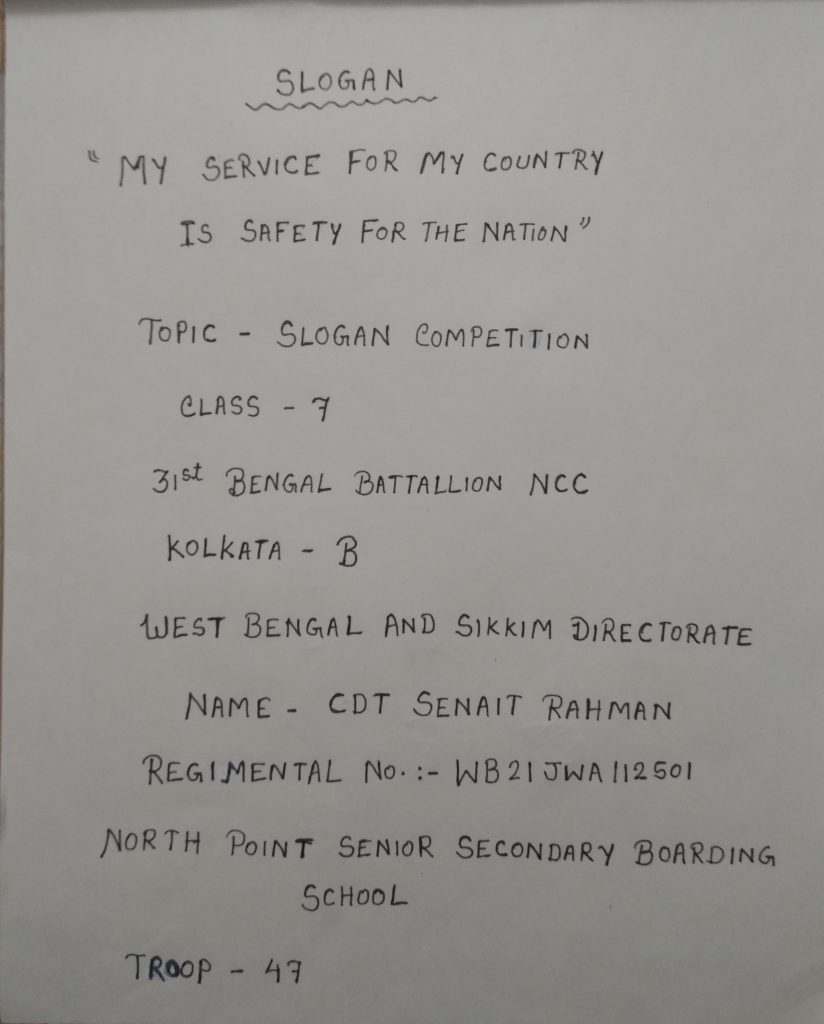 SLOGAN
" MY SERVICE FOR MY COUNTRY
IS SAFETY FOR THE NATION "
TOPIC - SLOGAN COMPETITION
CLASS - 7
31st BENGAL BATTALLION NCC
KOLKATA - B
WEST BENGAL AND SIKKIM DIRECTORATE
NAME - CDT SENAIT RAHMAN
REGIMENTAL No. :- WB21JWA112501
NORTH POINT SENIOR SECONDARY BOARDING
SCHOOL
TROOP - 47